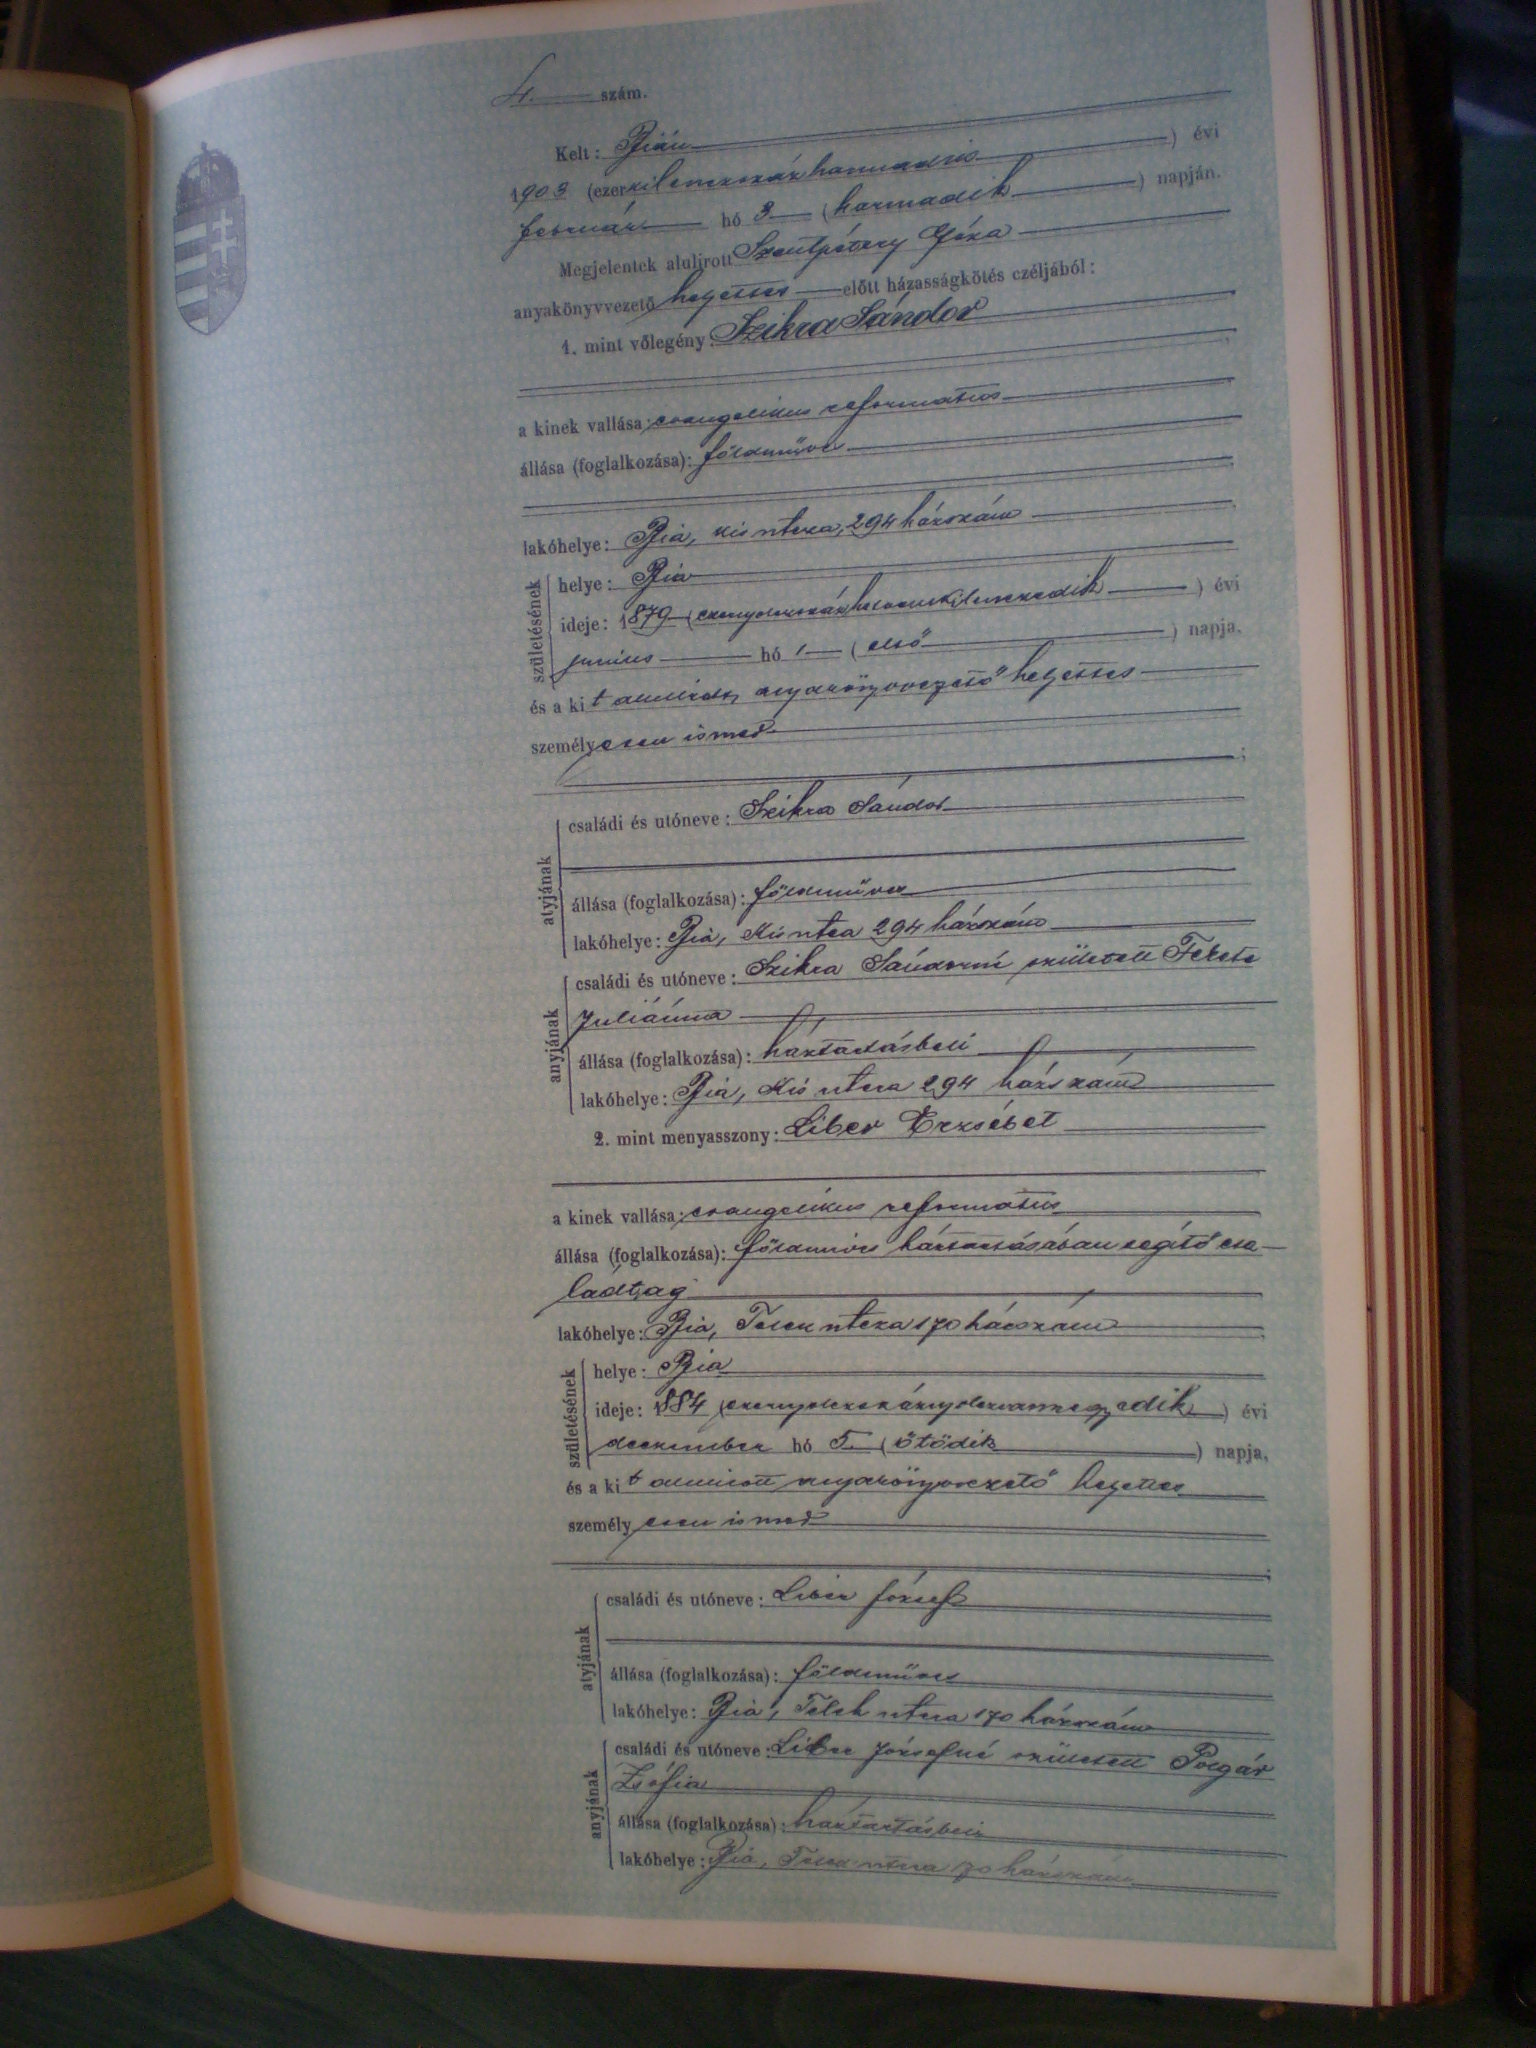 4. szám.
Kelt: Bián
1903 (ezerkilenczszázharmadik) évi
február hó 3 (harmadik) napján.
Megjelentek alulirott Szentpétery Géza
anyakönyvvezető helyettes előtt házasságkötés czéljából:
1. mint vőlegény: Szikra Sándor
a kinek vallása: evangelikus reformatus
állása (foglalkozása): földműves
lakóhelye: Bia, Kis utcza, 294 házszám
születésének
helye: Bia
ideje: 1879 (ezernyolczszázhetvenkilenczedik) évi
junius hó 1 (első) napja,
és a kit alulírott anyakönyvvezető helyettes
személyesen ismer
;
atyjának
családi és utóneve: Szikra Sándor
állása (foglalkozása): földműves
lakóhelye: Bia, Kis utca 294 házszám
anyjának
családi és utóneve: Szikra Sándorné született Fekete
Juliánna
állása (foglalkozása): háztartásbeli
lakóhelye: Bia, Kis utcza 294 házszám
2. mint menyasszony: Liber Erzsébet
a kinek vallása: evangelikus reformatus
állása (foglalkozása): földműves háztartásában segítő csa-
ládtag
lakóhelye: Bia, Telek utcza 170 házszám
születésének
helye: Bia
ideje: 1884 (ezernyolczszáznyolczvannegyedik) évi
deczember hó 5. (ötödik) napja,
és a kit alulirott anyakönyvvezető helyettes
személyesen ismer
;
atyjának
családi és utóneve: Liber József
állása (foglalkozása): földműves
lakóhelye: Bia, Telek utcza 170 házszám
anyjának
családi és utóneve: Liber Józsefné született Polgár
Zsófia
állása (foglalkozása): háztartásbeli
lakóhelye: Bia, Telek utcza 70 házszám